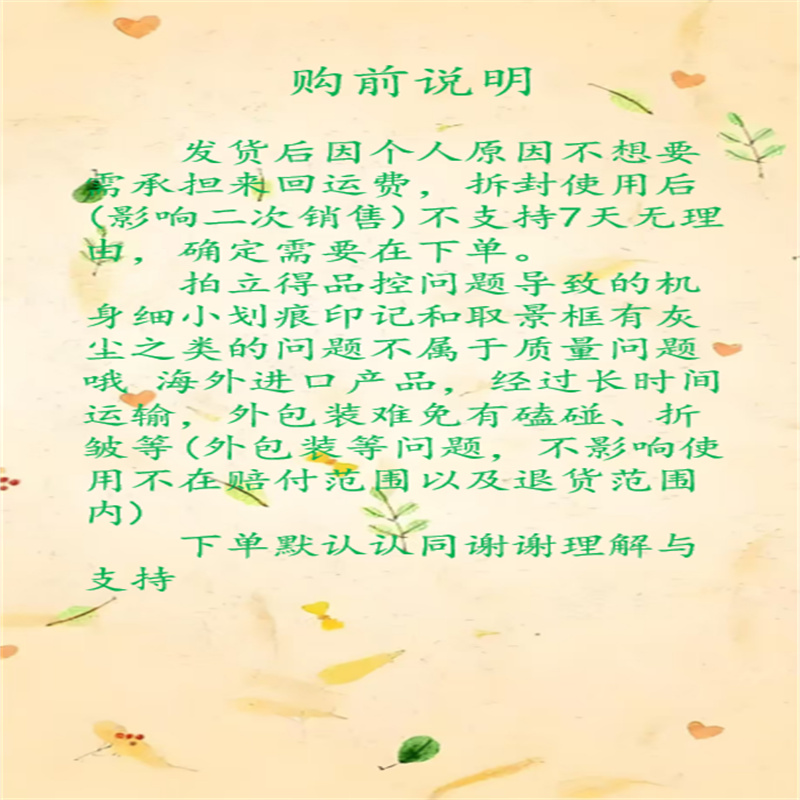 购前说明
发货后因个人原因不想要
需承担来回运费，拆封使用后
(影响二次销售)不支持7天无理
由，确定需要在下单。
拍立得品控问题导致的机
身细小划痕印记和取景框有灰
尘之类的问题不属于质量问题
哦 海外进口产品，经过长时间
运输，外包装难免有磕碰、折
皱等(外包装等问题，不影响使
用不在赔付范围以及退货范围
内)
下单默认认同谢谢理解与
支持